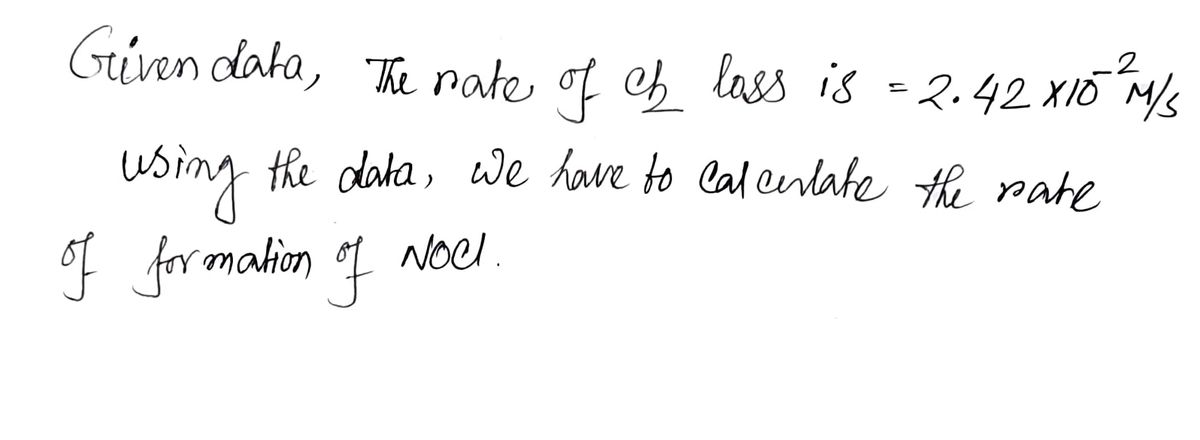 Given data, The rate of Cl2 loss is = 2.42 x10⁻² M/s
using the data, we have to Calculate the rate
of formation of NOCl.